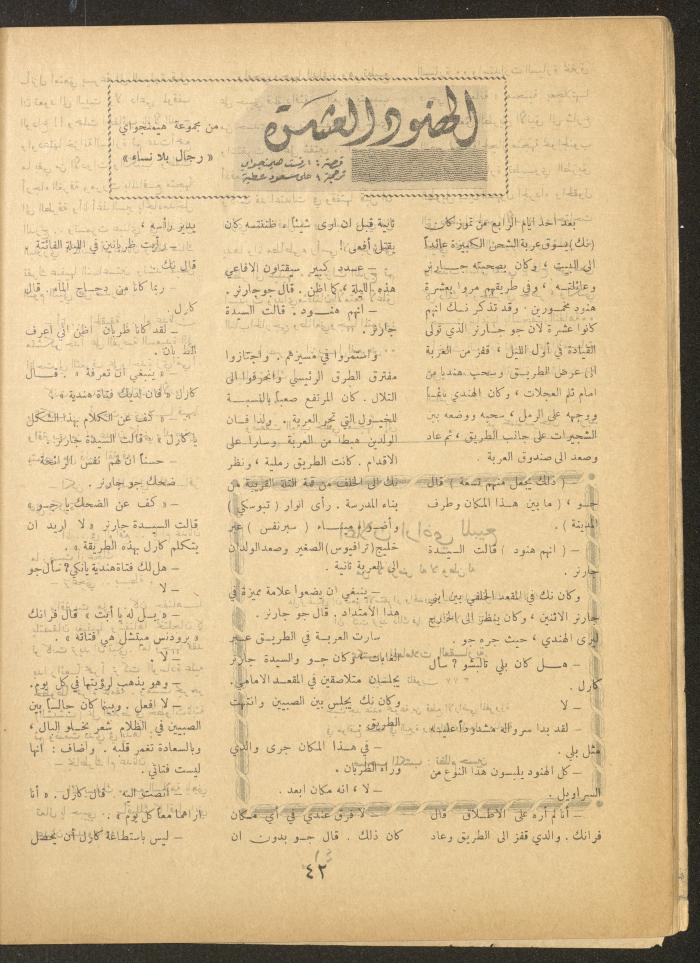 الهنود العشرة
من مجموعة هيمنجواي
« رجال بلا نساء »
قصة : ارنست هيمنجواي
ترجمة : علي سعود عطية
بعد احد ايام الرابع من تموز كان
(نك) يسوق عربة الشحن الكبيرة عائداً
الى البيت ، وكان بصحبته جارنر
وعائلته ، وفي طريقهم مروا بعشرة
هنود مخمورين . وقد تذكر نك انهم
كانوا عشرة لان جو جارنر الذي تولى
القيادة في أول الليل ، قفز من العربة
الى عرض الطريق وسحب هندياً من
امام تلم العجلات ، وكان الهندي نائماً
ووجهه على الرمل ، سحبه ووضعه بين
الشجيرات على جانب الطريق ، ثم عاد
وصعد الى صندوق العربة .
– ( ذلك يجعل منهم تسعة ) قال
جو ، ( ما بين هذا المكان وطرف
المدينة ) .
– ( انهم هنود ) قالت السيدة
جارنر .
وكان نك في المقعد الخلفي بين ابني
جارنر الاثنين ، وكان ينظر الى الخارج
ليرى الهندي ، حيث جره جو .
– هل كان بلي تابشو ? سأل
كارل .
– لا
– لقد بدا سرواله مشدوداً عليه
مثل بلي .
– كل الهنود يلبسون هذا النوع من
السراويل .
– أنا لم أره على الاطلاق قال
فرانك . والدي قفز الى الطريق وعاد
ثانية قبل ان ارى شيئاً ، ظننته كان
يقتل أفعى !
– عدد كبير سيقتلون الافاعي
هذه الليلة ، كما اظن . قال جو جارنر .
– انهم هنود . قالت السيدة
جارنر .
واستمروا في مسيرهم . واجتازوا
مفترق الطرق الرئيسي وانحرفوا الى
التلال . كان المرتفع صعباً بالنسبة
للخيول التي تجر العربة . ولذا فان
الولدين هبطا من العربة وسارا على
الاقدام . كانت الطريق رملية ، ونظر
نك الى الخلف من قمة التلة القريبة من
بناء المدرسة . رأى انوار ( تبوسكي )
وأضواء ميناء ( سبرنفس ) عبر
خليج ( ترافيوس) الصغير وصعد الولدان
الى العربة ثانية .
– ينبغي ان يضعوا علامة مميزة في
هذا الامتداد . قال جو جارنر .
سارت العربة في الطريق عبر
الغابات ، وكان جو والسيدة جارنر
يجلسان متلاصقين في المقعد الامامي .
وكان نك يجلس بين الصبيين وانتهت
الطريق
– في هذا المكان جرى والدي
وراء الظربان .
– لا ، انه مكان ابعد .
– لا فرق عندي في أي مكان
كان ذلك . قال جو بدون ان
يدير رأسه ،
– رأيت ظربانين في الليلة الفائتة .
قال نك .
– ربما كانا من دجاج الماء . قال
كارل .
– لقد كانا ظربان اظن اني أعرف
الظربان .
– « ينبغي أن تعرفه » . قال
كارل « فان لديك فتاة هندية » .
– « كف عن الكلام بهذا الشكل
يا كارل » قالت السيدة جارنر :
– حسناً ان لهم نفس الرائحة .
ضحك جو جارنر .
– « كف عن الضحك يا جو »
قالت السيدة جارنر « لا اريد ان
يتكلم كارل بهذه الطريقة » .
– هل لك فتاة هندية يانكي ? سأل جو
– لا
– « بلى له يا أبت » قال فرانك
« برودنس ميتشل هي فتاته » .
– لا
– وهو يذهب لرؤيتها في كل يوم .
– لا افعل . وبينما كان جالساً بين
الصبيين في الظلام شعر بخلو البال ،
وبالسعادة تغمر قلبه . وأضاف : انها
ليست فتاتي .
– أنصتو اليه . قال كارل . « أنا
اراهما معاً كل يوم » .
– ليس باستطاعة كارل أن يحصل
٤٢